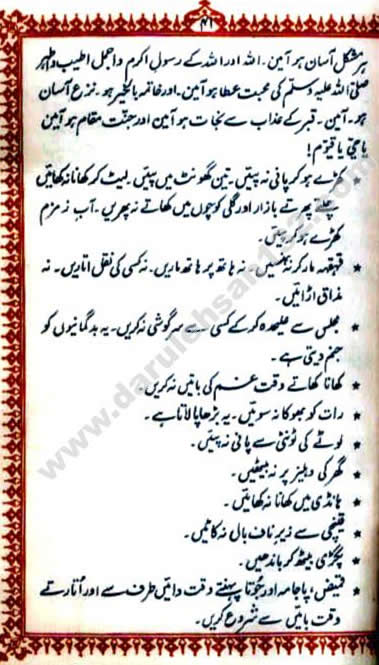 ۴۱
ہر مشکل آسان ہو آمین۔ اللہ اور اللہ کے رسولِ اکرم و اجمل اطیب و اطہر
صلی اللہ علیہ وسلم کی محبت عطا ہو آمین۔ اور خاتمہ بالخیر ہو۔ نزع آسان
ہو۔ آمین۔ قبر کے عذاب سے نجات ہو آمین اور جنت مقام ہو آمین
یا حیّ یا قیّوم!
★ کھڑے ہو کر پانی نہ پئیں۔ تین گھونٹ میں پئیں۔ لیٹ کر کھانا نہ کھائیں
چلتے پھرتے بازار اور گلی کوچوں میں کھاتے نہ پھریں۔ آبِ زمزم
کھڑے ہو کر پئیں۔
★ قہقہہ مار کر نہ ہنسیں۔ نہ ہاتھ پر ہاتھ ماریں۔ نہ کسی کی نقل اتاریں۔ نہ
مذاق اڑائیں۔
★ مجلس سے علیحدہ ہو کے کسی سے سرگوشی نہ کریں۔ یہ بدگمانیوں کو
جنم دیتی ہے۔
★ کھانا کھاتے وقت غم کی باتیں نہ کریں۔
★ رات کو بھوکا نہ سوئیں۔ یہ بڑھاپا لاتا ہے۔
★ لوٹے کی ٹونٹی سے پانی نہ پئیں۔
★ گھر کی دہلیز پر نہ بیٹھیں۔
★ ہانڈی میں کھانا نہ کھائیں۔
★ قینچی سے زیرِ ناف بال نہ کاٹیں۔
★ پگڑی بیٹھ کر باندھیں۔
★ قمیض، پاجامہ اور جوتا پہنتے وقت دائیں طرف سے اور اُتارتے
وقت بائیں سے شروع کریں۔
www.darulehsan122.com